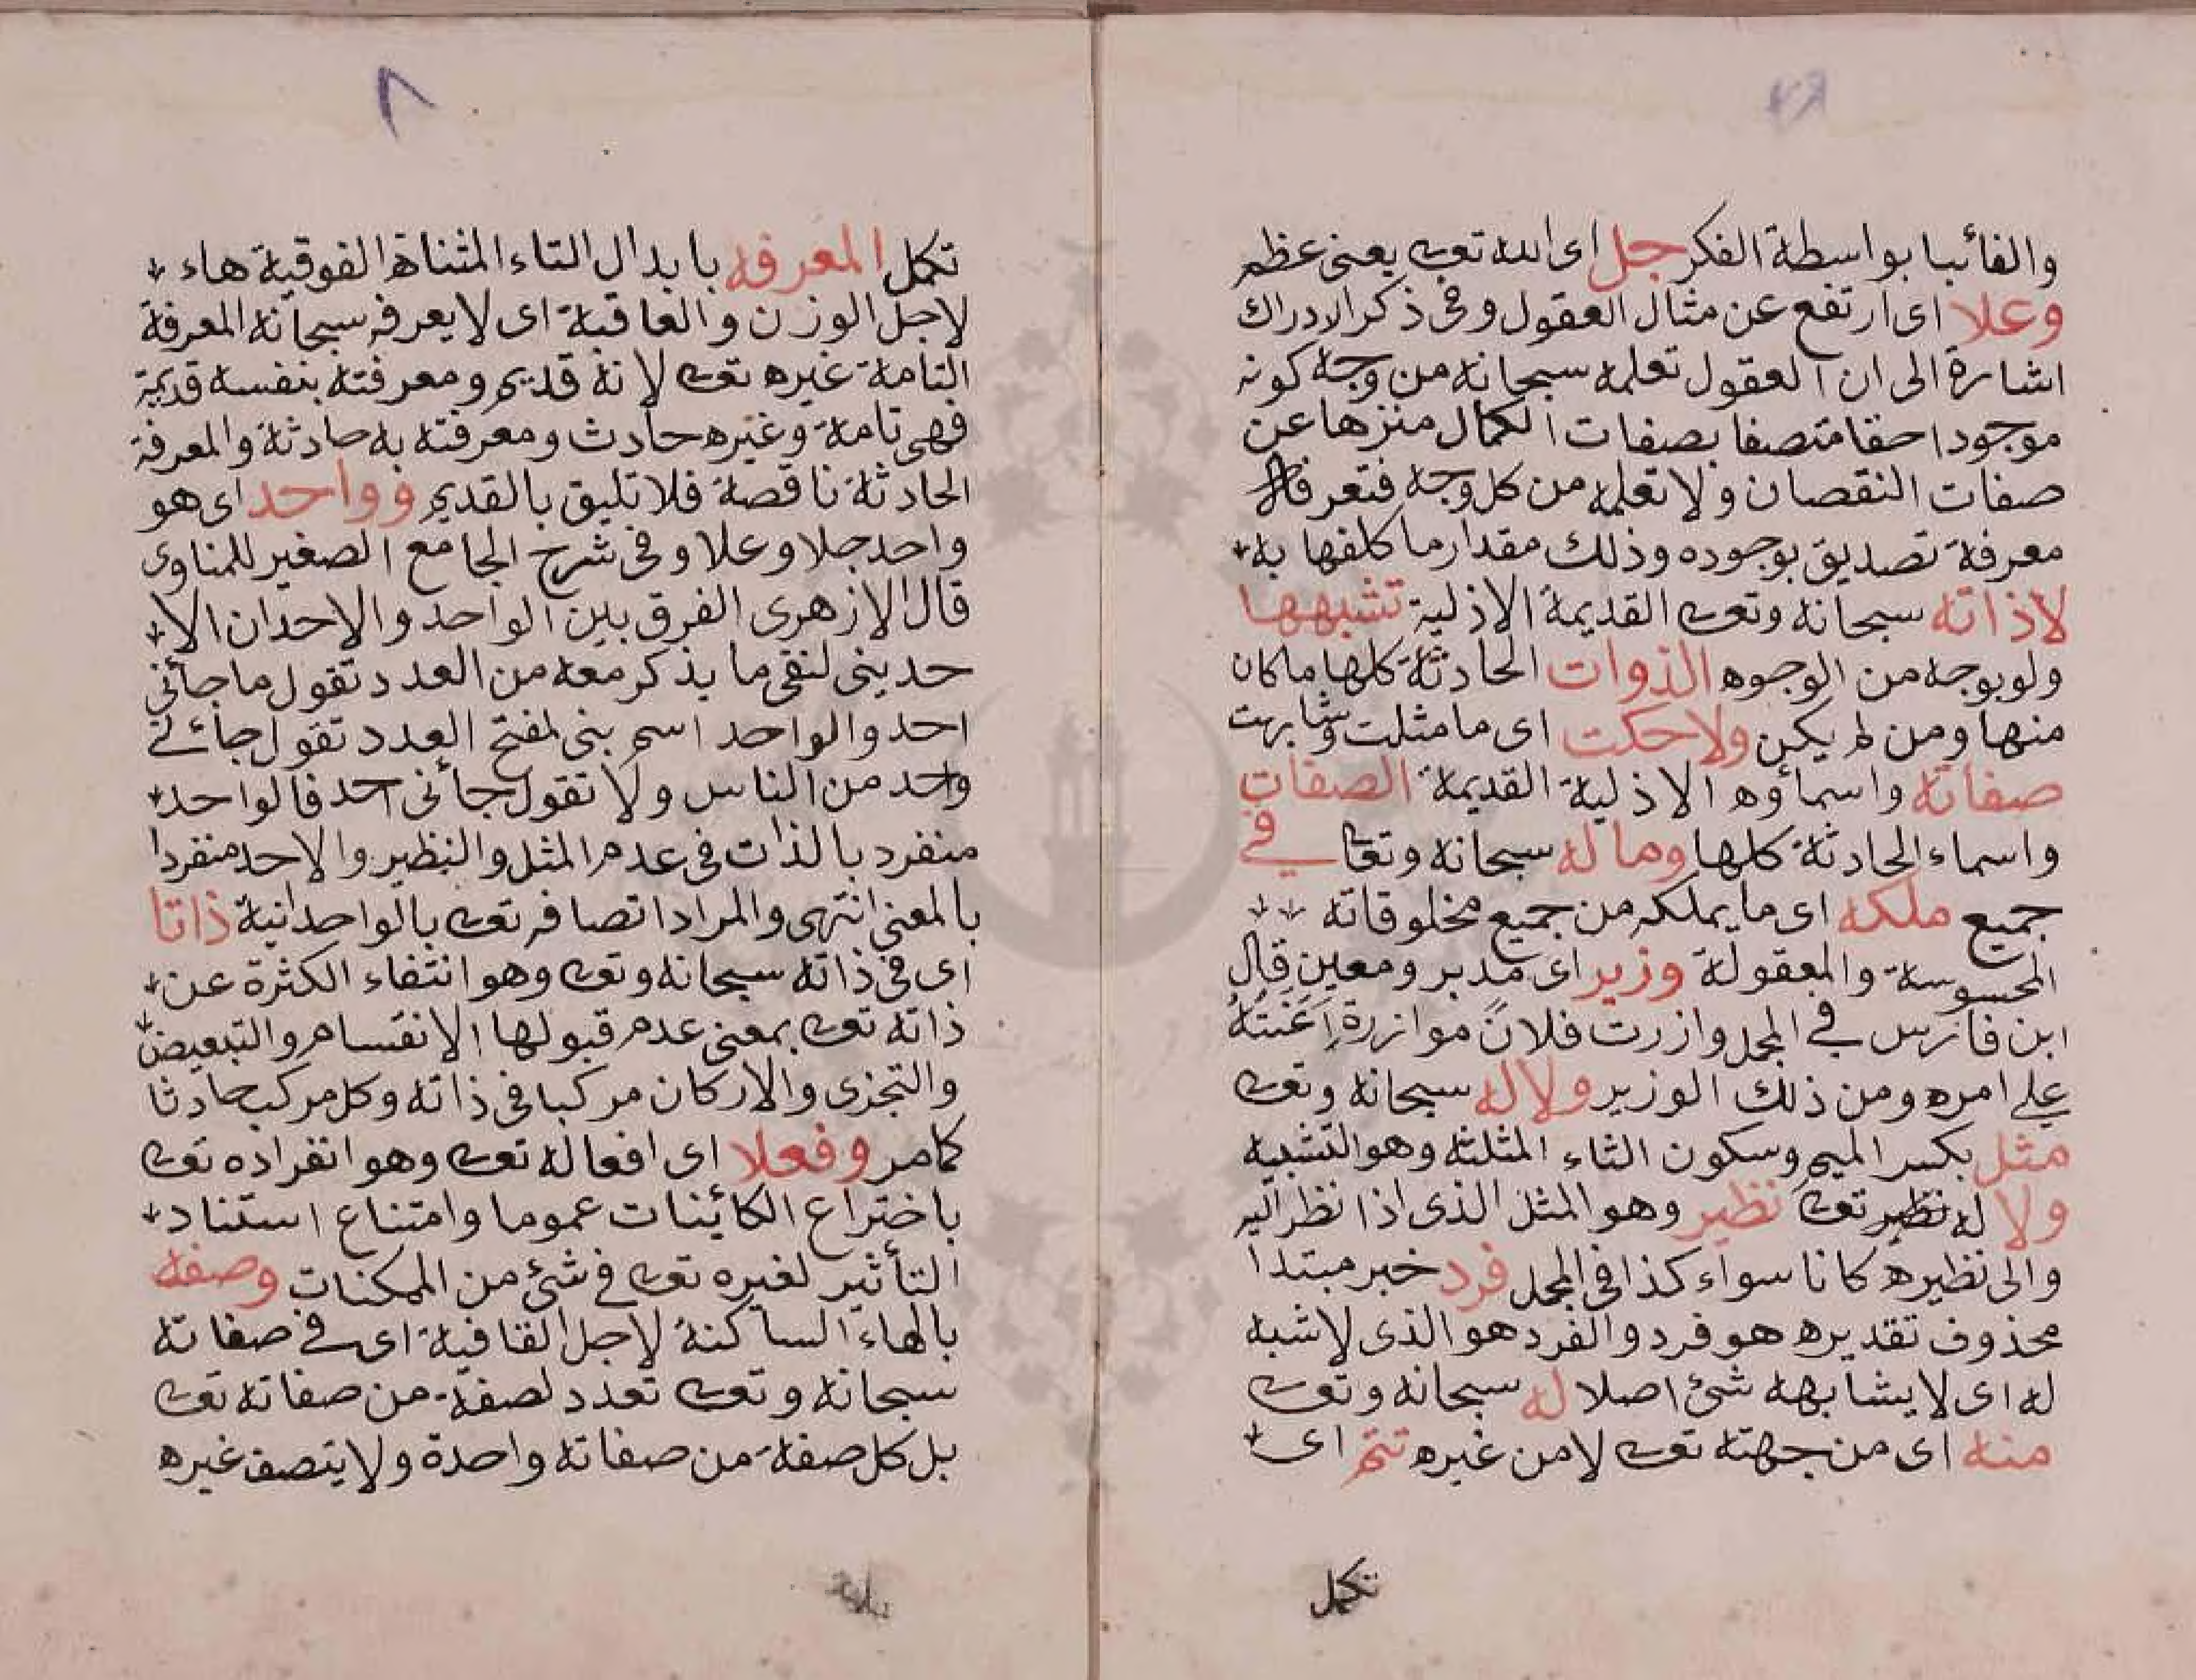 والغائبا بواسطة الفكر جل اى الله تعى يعنى عظم
وعلا اى ارتفع عن مثال العقول وفى ذكر الادراك
اشارة الى ان العقول تعلمه سبحانه من وجه كونه
موجودا حقا متصفا بصفات الكمال منزها عن
صفات النقصان ولا تعلمه من كل وجه فتعرفه
معرفة تصديق بوجوده وذلك مقدار ما كلفها به
لا ذاته سبحانه وتعى القديمة الاذلية تشبهها
ولو بوجه من الوجوه الذوات الحادثة كلها ما كان
منها ومن لم يكن ولا حكت اى ما مثلت وشابهت
صفاته واسماؤه الاذلية القديمة الصفات
واسماء الحادثة كلها وما له سبحانه وتعا فى
جميع ملكه اى ما يملكه من جميع مخلوقاته
المحسوسة والمعقولة وزير اى مدبر ومعين قال
ابن فارس في المجمل وازرت فلانً موازرة اَعَنْتُهُ
على امره ومن ذلك الوزير ولا له سبحانه وتعى
مثل بكسر الميم وسكون الثاء المثلثة وهو التشبيه
ولا له نظير تعى نظير وهو المثل الذى اذا نظر اليه
والى نظيره كانا سواء كذا فى المجمل فرد خبر مبتدا
محذوف تقديره هو فرد والفرد هو الذى لا شبه
له اى لا يشابهه شئ اصلا له سبحانه وتعى
منه اى من جهته تعى لا من غيره تتم اى
تكمل
٨
تكمل المعرفه بابدال التاء المثناة الفوقية هاء
لاجل الوزن والعاقبة اى لا يعرفه سبحانه المعرفة
التامة غيره تعى لانه قديم ومعرفته بنفسه قديمة
فهى تامة وغيره حادث ومعرفته به حادثة والمعرفة
الحادثة ناقصة فلا تليق بالقديم وواحد اى هو
واحد جلا وعلا وفى شرح الجامع الصغير للمناوى
قال الازهرى الفرق بين الواحد والاحد ان الا
حد بنى لنفى ما يذكر معه من العدد تقول ما جائنى
احد والواحد اسم بنى لمفتح العدد تقول جائنى
واحد من الناس ولا تقول جائنى احد فالواحد
منفرد بالذات فى عدم المثل والنظير والاحد منفردا
بالمعنى انتهى والمراد اتصافه تعى بالواحدانية ذاتا
اى فى ذاته سبحانه وتعى وهو انتفاء الكثرة عن
ذاته تعى بمعنى عدم قبولها الانقسام والتبعيض
والتجزى والاركان مركبا فى ذاته وكل مركب حادثا
كامر وفعلا اى افعاله تعى وهو انفراده تعى
باختراع الكائينات عموما وامتناع استناد
التأثير لغيره تعى فى شئ من الممكنات وصفه
بالهاء الساكنة لاجل القافية اى فى صفاته
سبحانه وتعى تعدد لصفة من صفاته تعى
بل كل صفة من صفاته واحدة ولا يتصف غيره